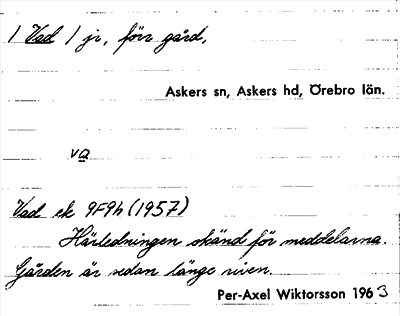 / Vad / jr, förr gård,
Askers sn, Askers hd, Örebro län.
va
Vad ek 9F9h (1957)
Härledningen okänd för meddelarna.
Gården är sedan länge riven.
Per-Axel Wiktorsson 1963